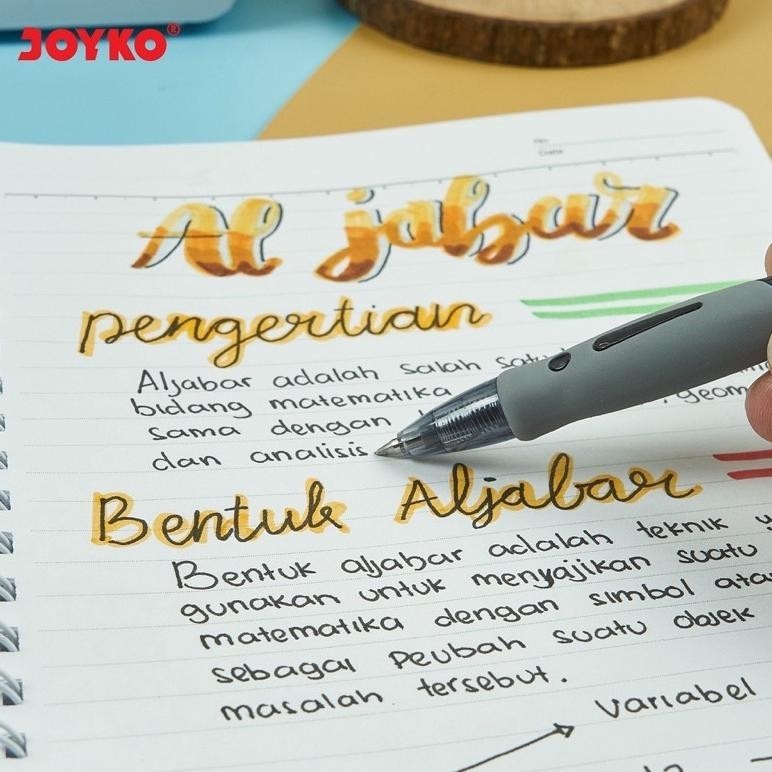 JOYKO®
No.
Date
Al jabar
pengertian
Aljabar adalah salah satu
bidang matematika
sama dengan , geom
dan analisis
Bentuk Aljabar
Bentuk aljabar adalah teknik y
gunakan untuk menyajikan suatu
matematika dengan simbol atau
sebagai Peubah suatu objek
masalah tersebut.
Variabel